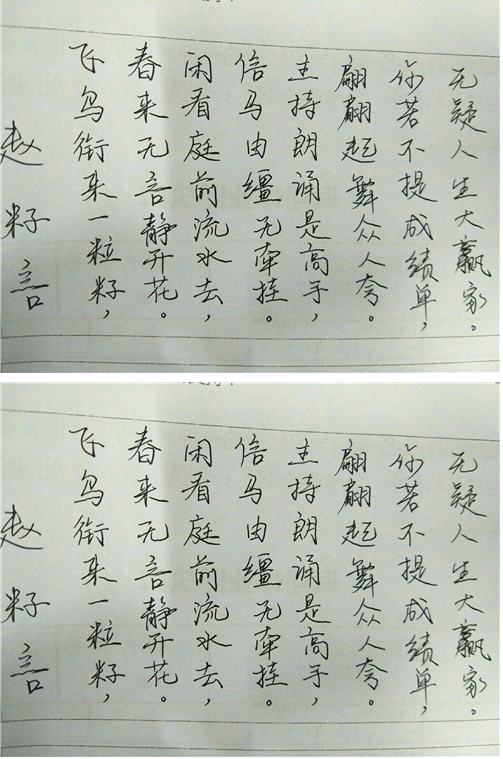 赵籽言
飞鸟衔来一粒籽，
春来无言静开花。
闲看庭前流水去，
信马由缰无牵挂。
主持朗诵是高手，
翩翩起舞众人夸。
你若不提成绩单，
无疑人生大赢家。
赵籽言
飞鸟衔来一粒籽，
春来无言静开花。
闲看庭前流水去，
信马由缰无牵挂。
主持朗诵是高手，
翩翩起舞众人夸。
你若不提成绩单，
无疑人生大赢家。